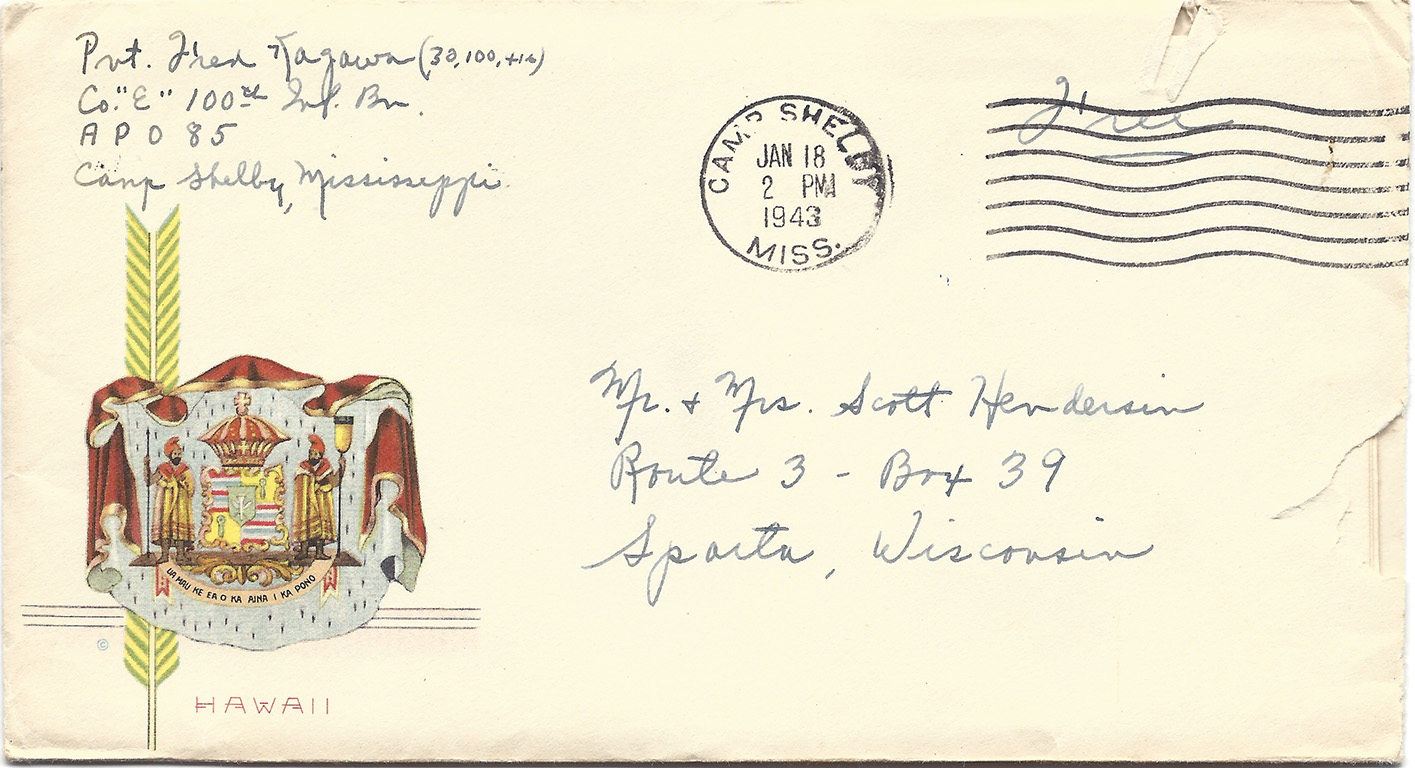 Pvt. Fred Kagawa
Co. "E" 100th Inf. Bn.
A P O 85
Camp Shelby, Mississippi
CAMP SHELBY
JAN 18
2 PM
1943
MISS.
Free
Mr. & Mrs. Scott Hendersin
Route 3 - Box 39
Sparta, Wisconsin
UA MAU KE EA O KA AINA I KA PONO
©
HAWAII